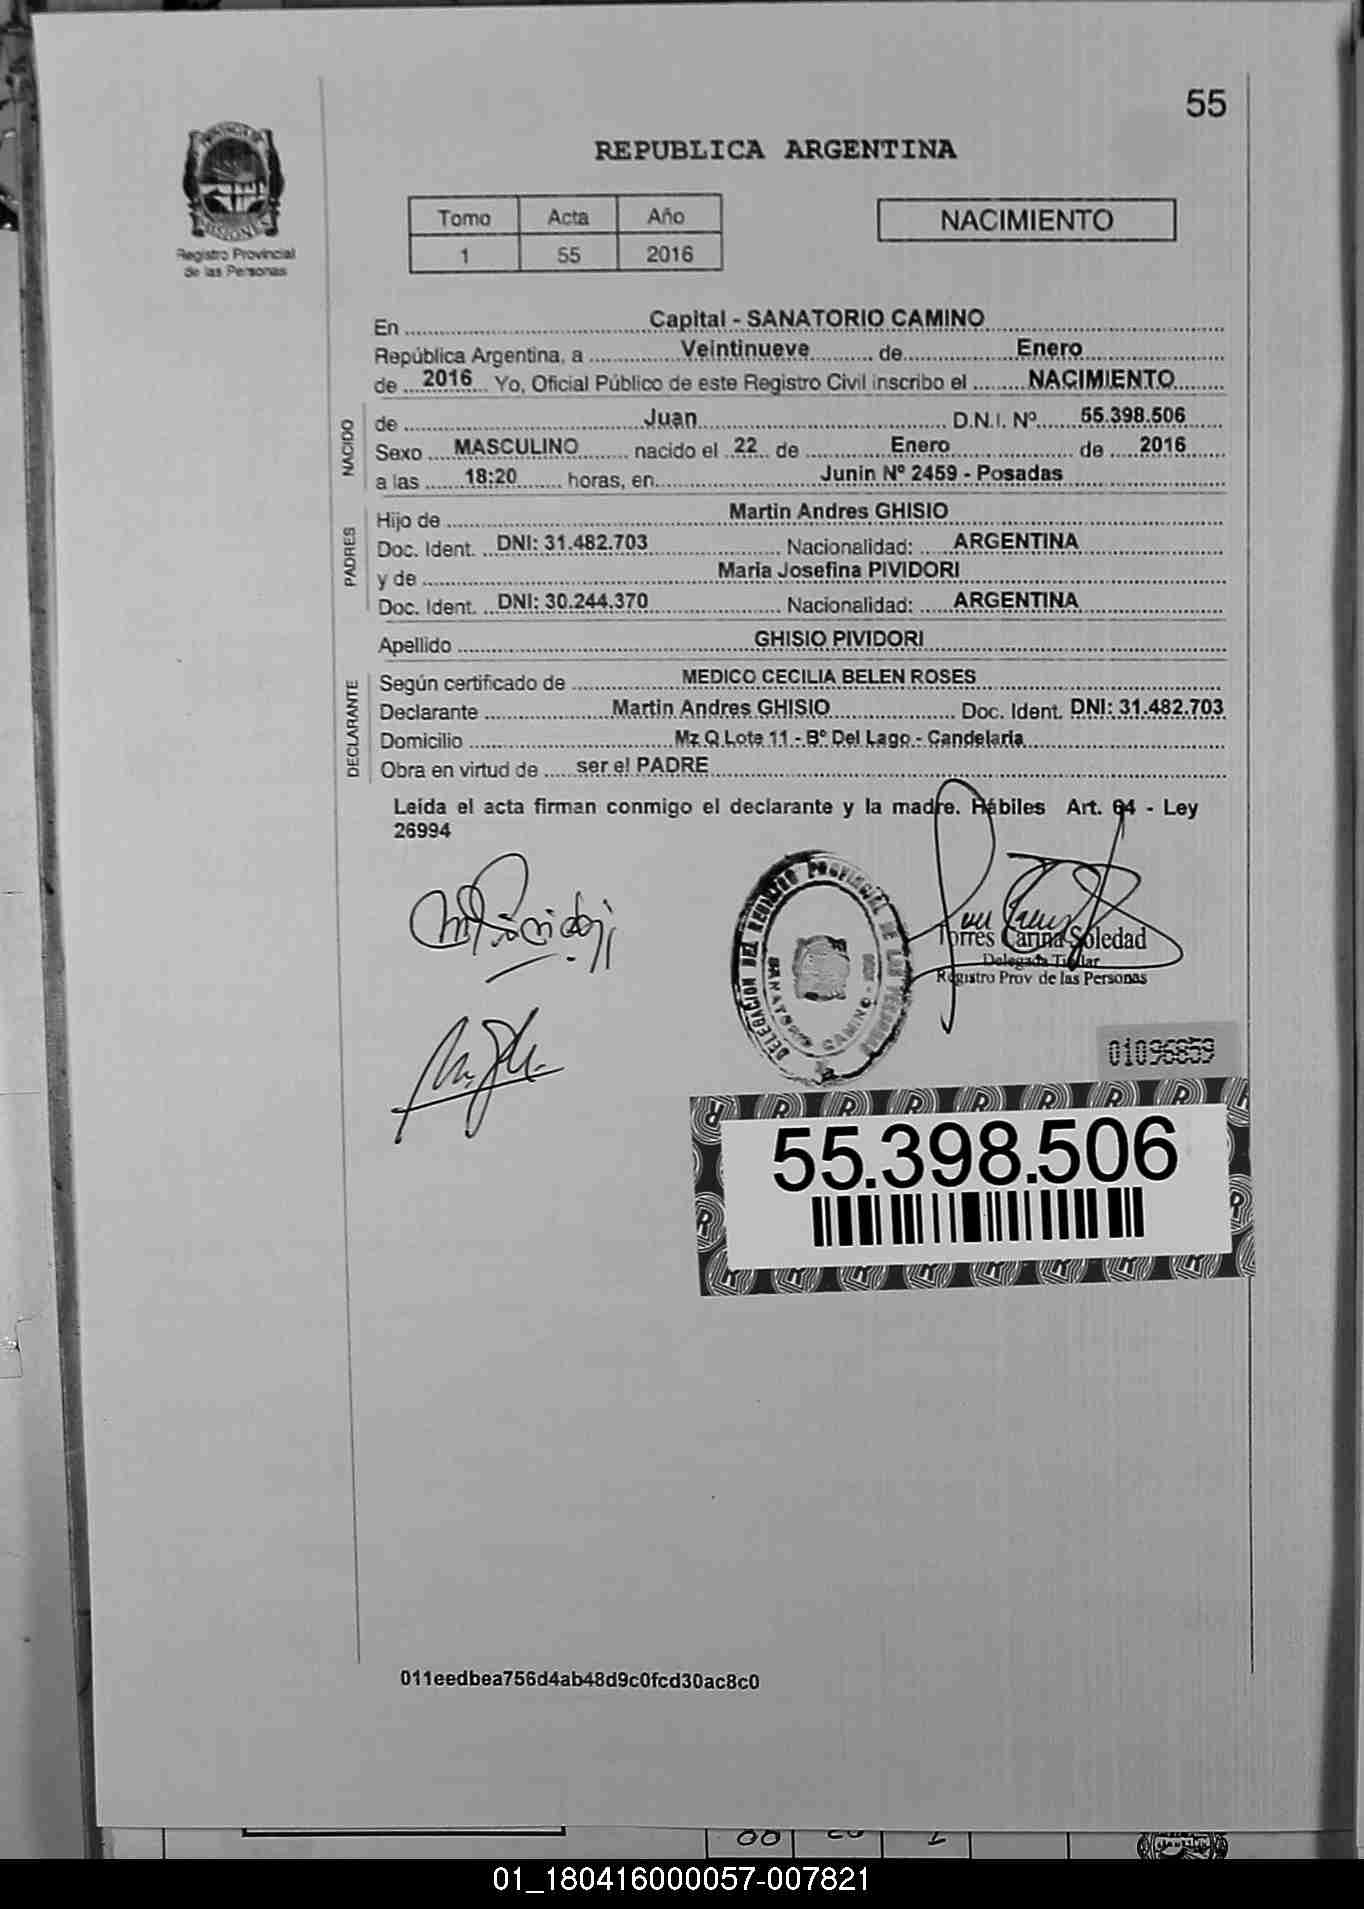 55
REPUBLICA ARGENTINA
Registro Provincial
de las Personas
Tomo Acta Año
1 55 2016
NACIMIENTO
En Capital - SANATORIO CAMINO
República Argentina, a Veintinueve de Enero
de 2016 Yo, Oficial Público de este Registro Civil inscribo el NACIMIENTO
NACIDO
de Juan D.N.I. Nº 55.398.506
Sexo MASCULINO nacido el 22 de Enero de 2016
a las 18:20 horas, en Junin Nº 2459 - Posadas
PADRES
Hijo de Martin Andres GHISIO
Doc. Ident. DNI: 31.482.703 Nacionalidad: ARGENTINA
y de Maria Josefina PIVIDORI
Doc. Ident. DNI: 30.244.370 Nacionalidad: ARGENTINA
Apellido GHISIO PIVIDORI
DECLARANTE
Según certificado de MEDICO CECILIA BELEN ROSES
Declarante Martin Andres GHISIO Doc. Ident. DNI: 31.482.703
Domicilio Mz Q Lote 11 - Bº Del Lago - Candelaria
Obra en virtud de ser el PADRE
Leída el acta firman conmigo el declarante y la madre. Hábiles Art. 64 - Ley
26994
DELEGACION DEL REGISTRO PROVINCIAL DE LAS PERSONAS
SANATORIO CAMINO
Torres Carina Soledad
Delegada Titular
Registro Prov de las Personas
01096859
55.398.506
011eedbea756d4ab48d9c0fcd30ac8c0
01_180416000057-007821